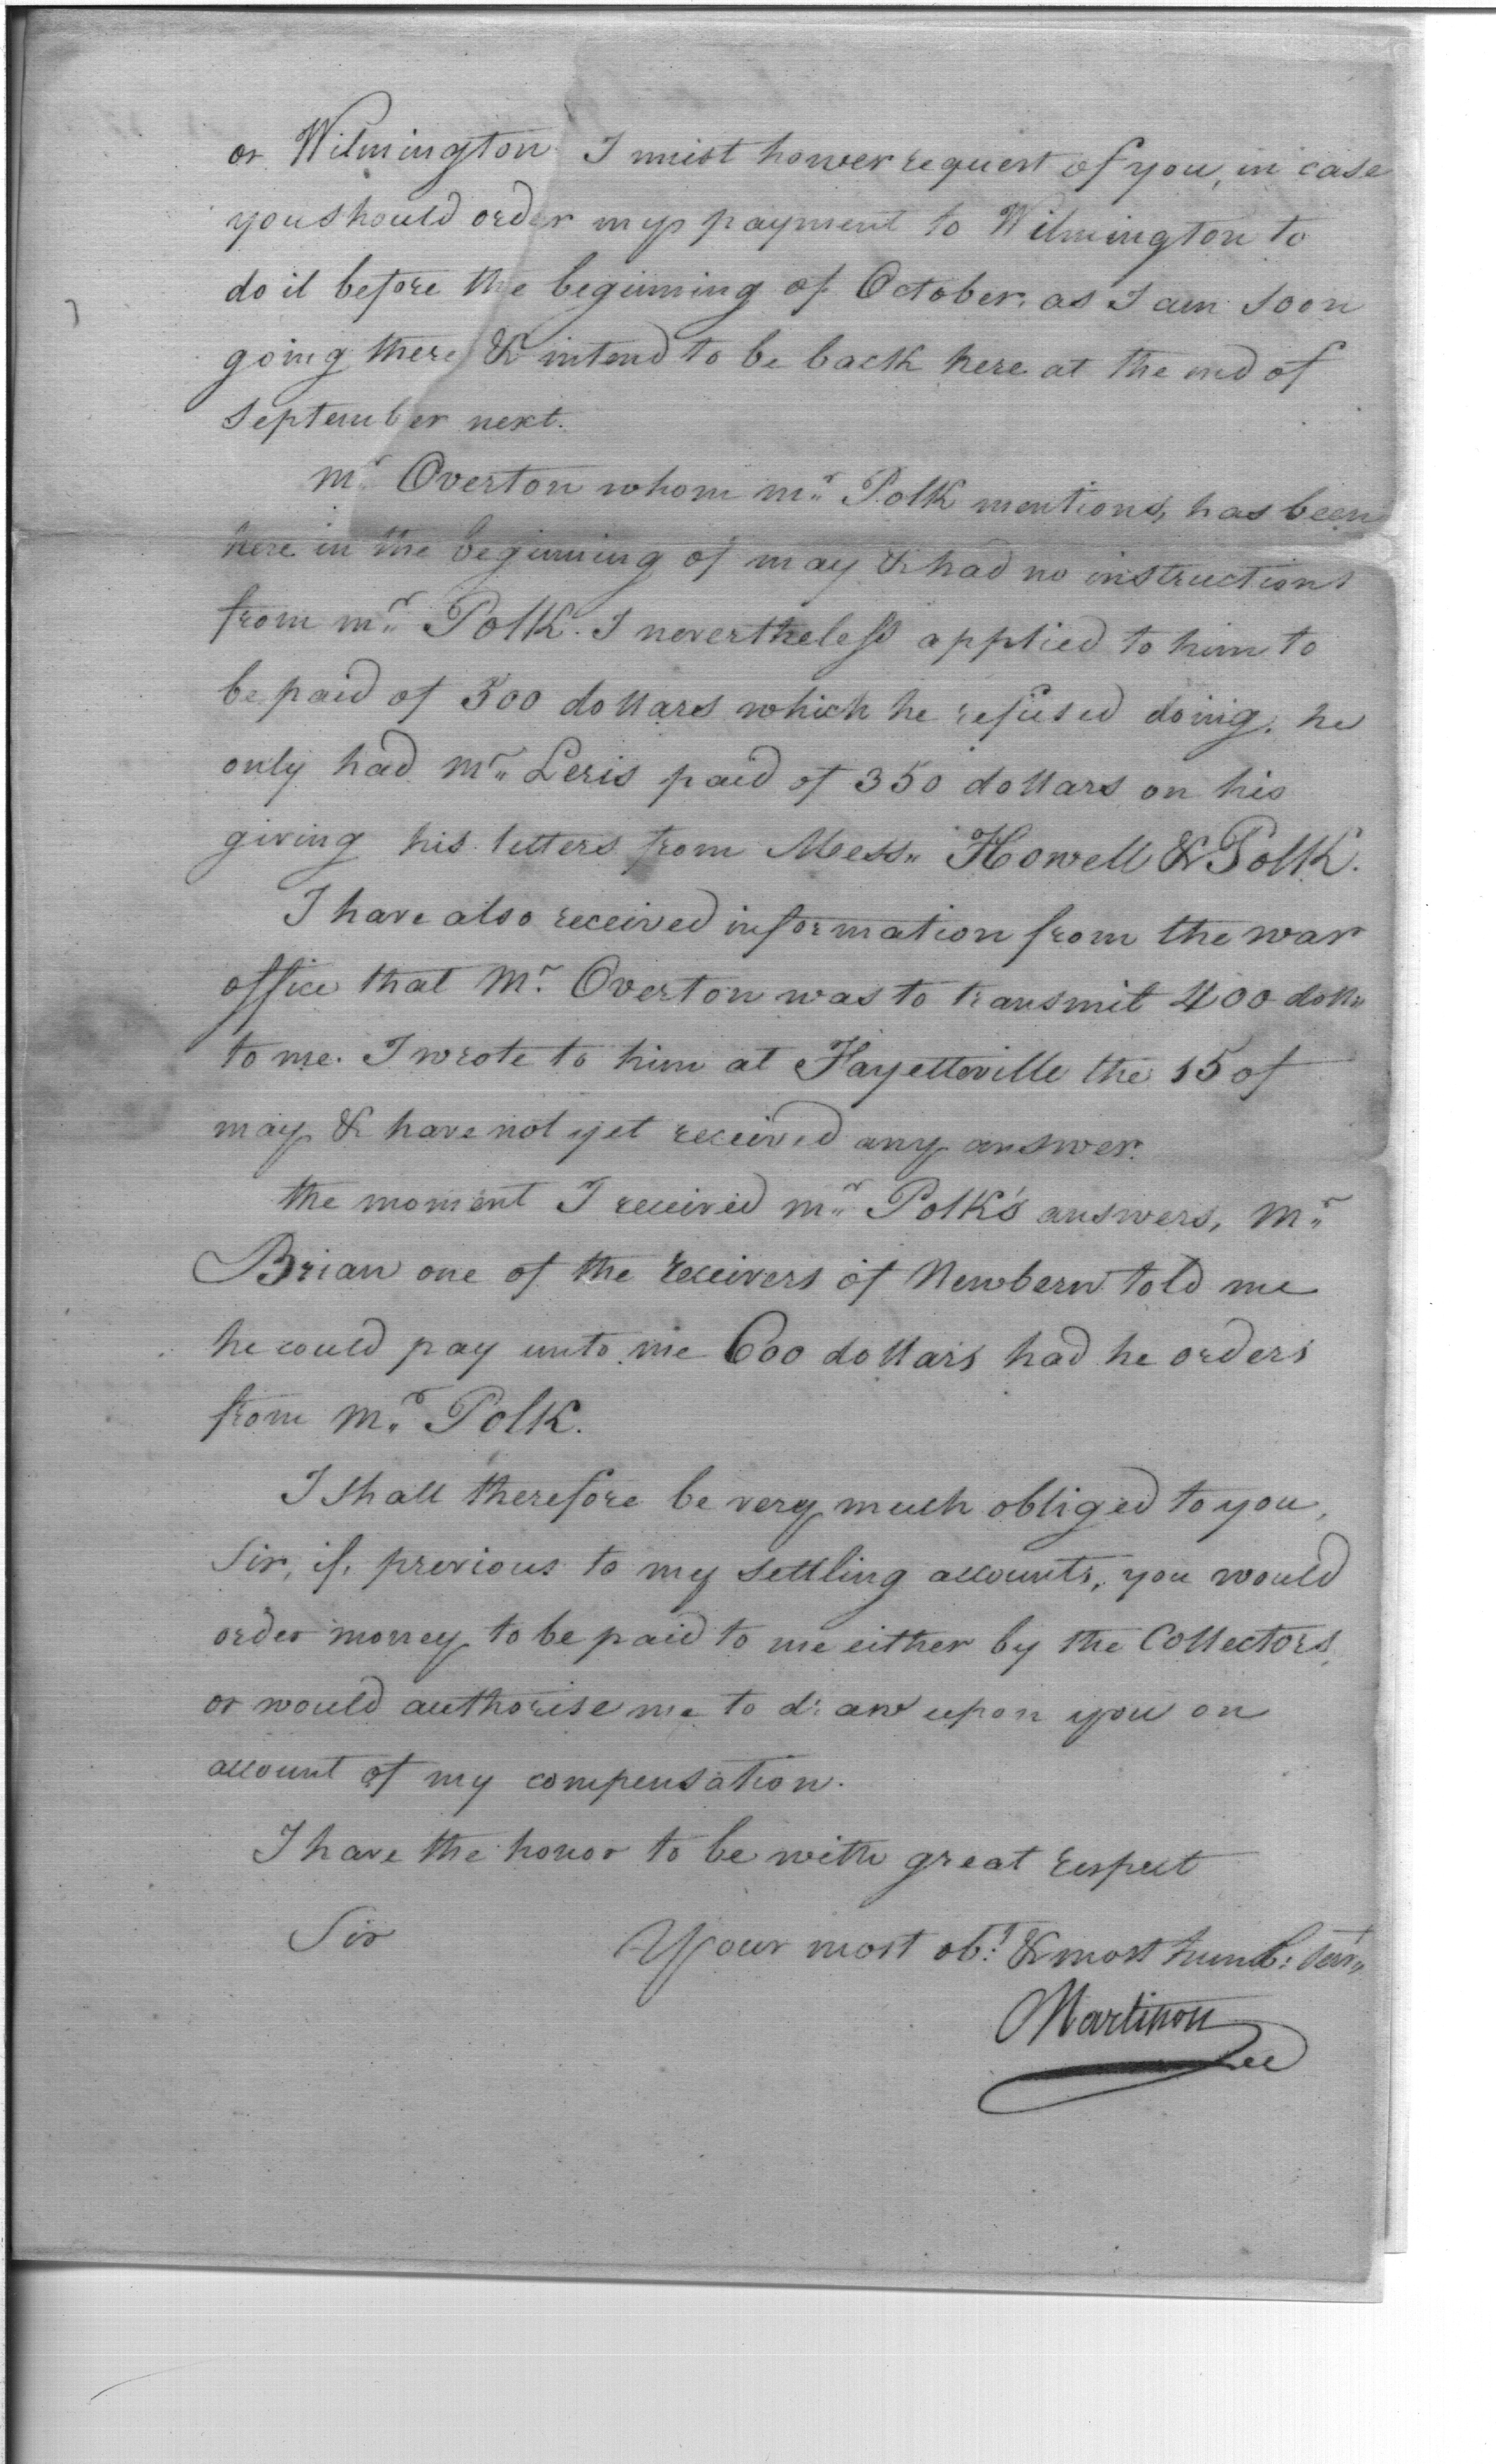 or Wilmington I must hower request of you, in case
you should order my payment to Wilmington to
do it before the beginning of October, as I am soon
going there & intend to be back here at the end of
September next.
Mr. Overton whom mr. Polk mentions, has been
here in the beginning of may & had no instructions
from mr. Polk. I nevertheless applied to him to
be paid of 500 dollars which he refused doing. he
only had Mr. Leris paid of 350 dollars on his
giving his letters from Mess. Howell & Polk.
I have also received information from the war
office that Mr. Overton was to transmit 400 dolls
to me. I wrote to him at Fayetteville the 15 of
may & have not yet received any answer.
the moment I received mr. Polk's answers, Mr.
Brian one of the receivers of Newbern told me
he could pay unto me 600 dollars had he orders
from Mr. Polk.
I shall therefore be very much obliged to you,
Sir, if, previous to my settling accounts, you would
order money to be paid to me either by the Collectors,
or would authorise me to draw upon you on
account of my compensation.
I have the honor to be with great respect
Sir Your most obt. & most humb: Serv.
Martinon